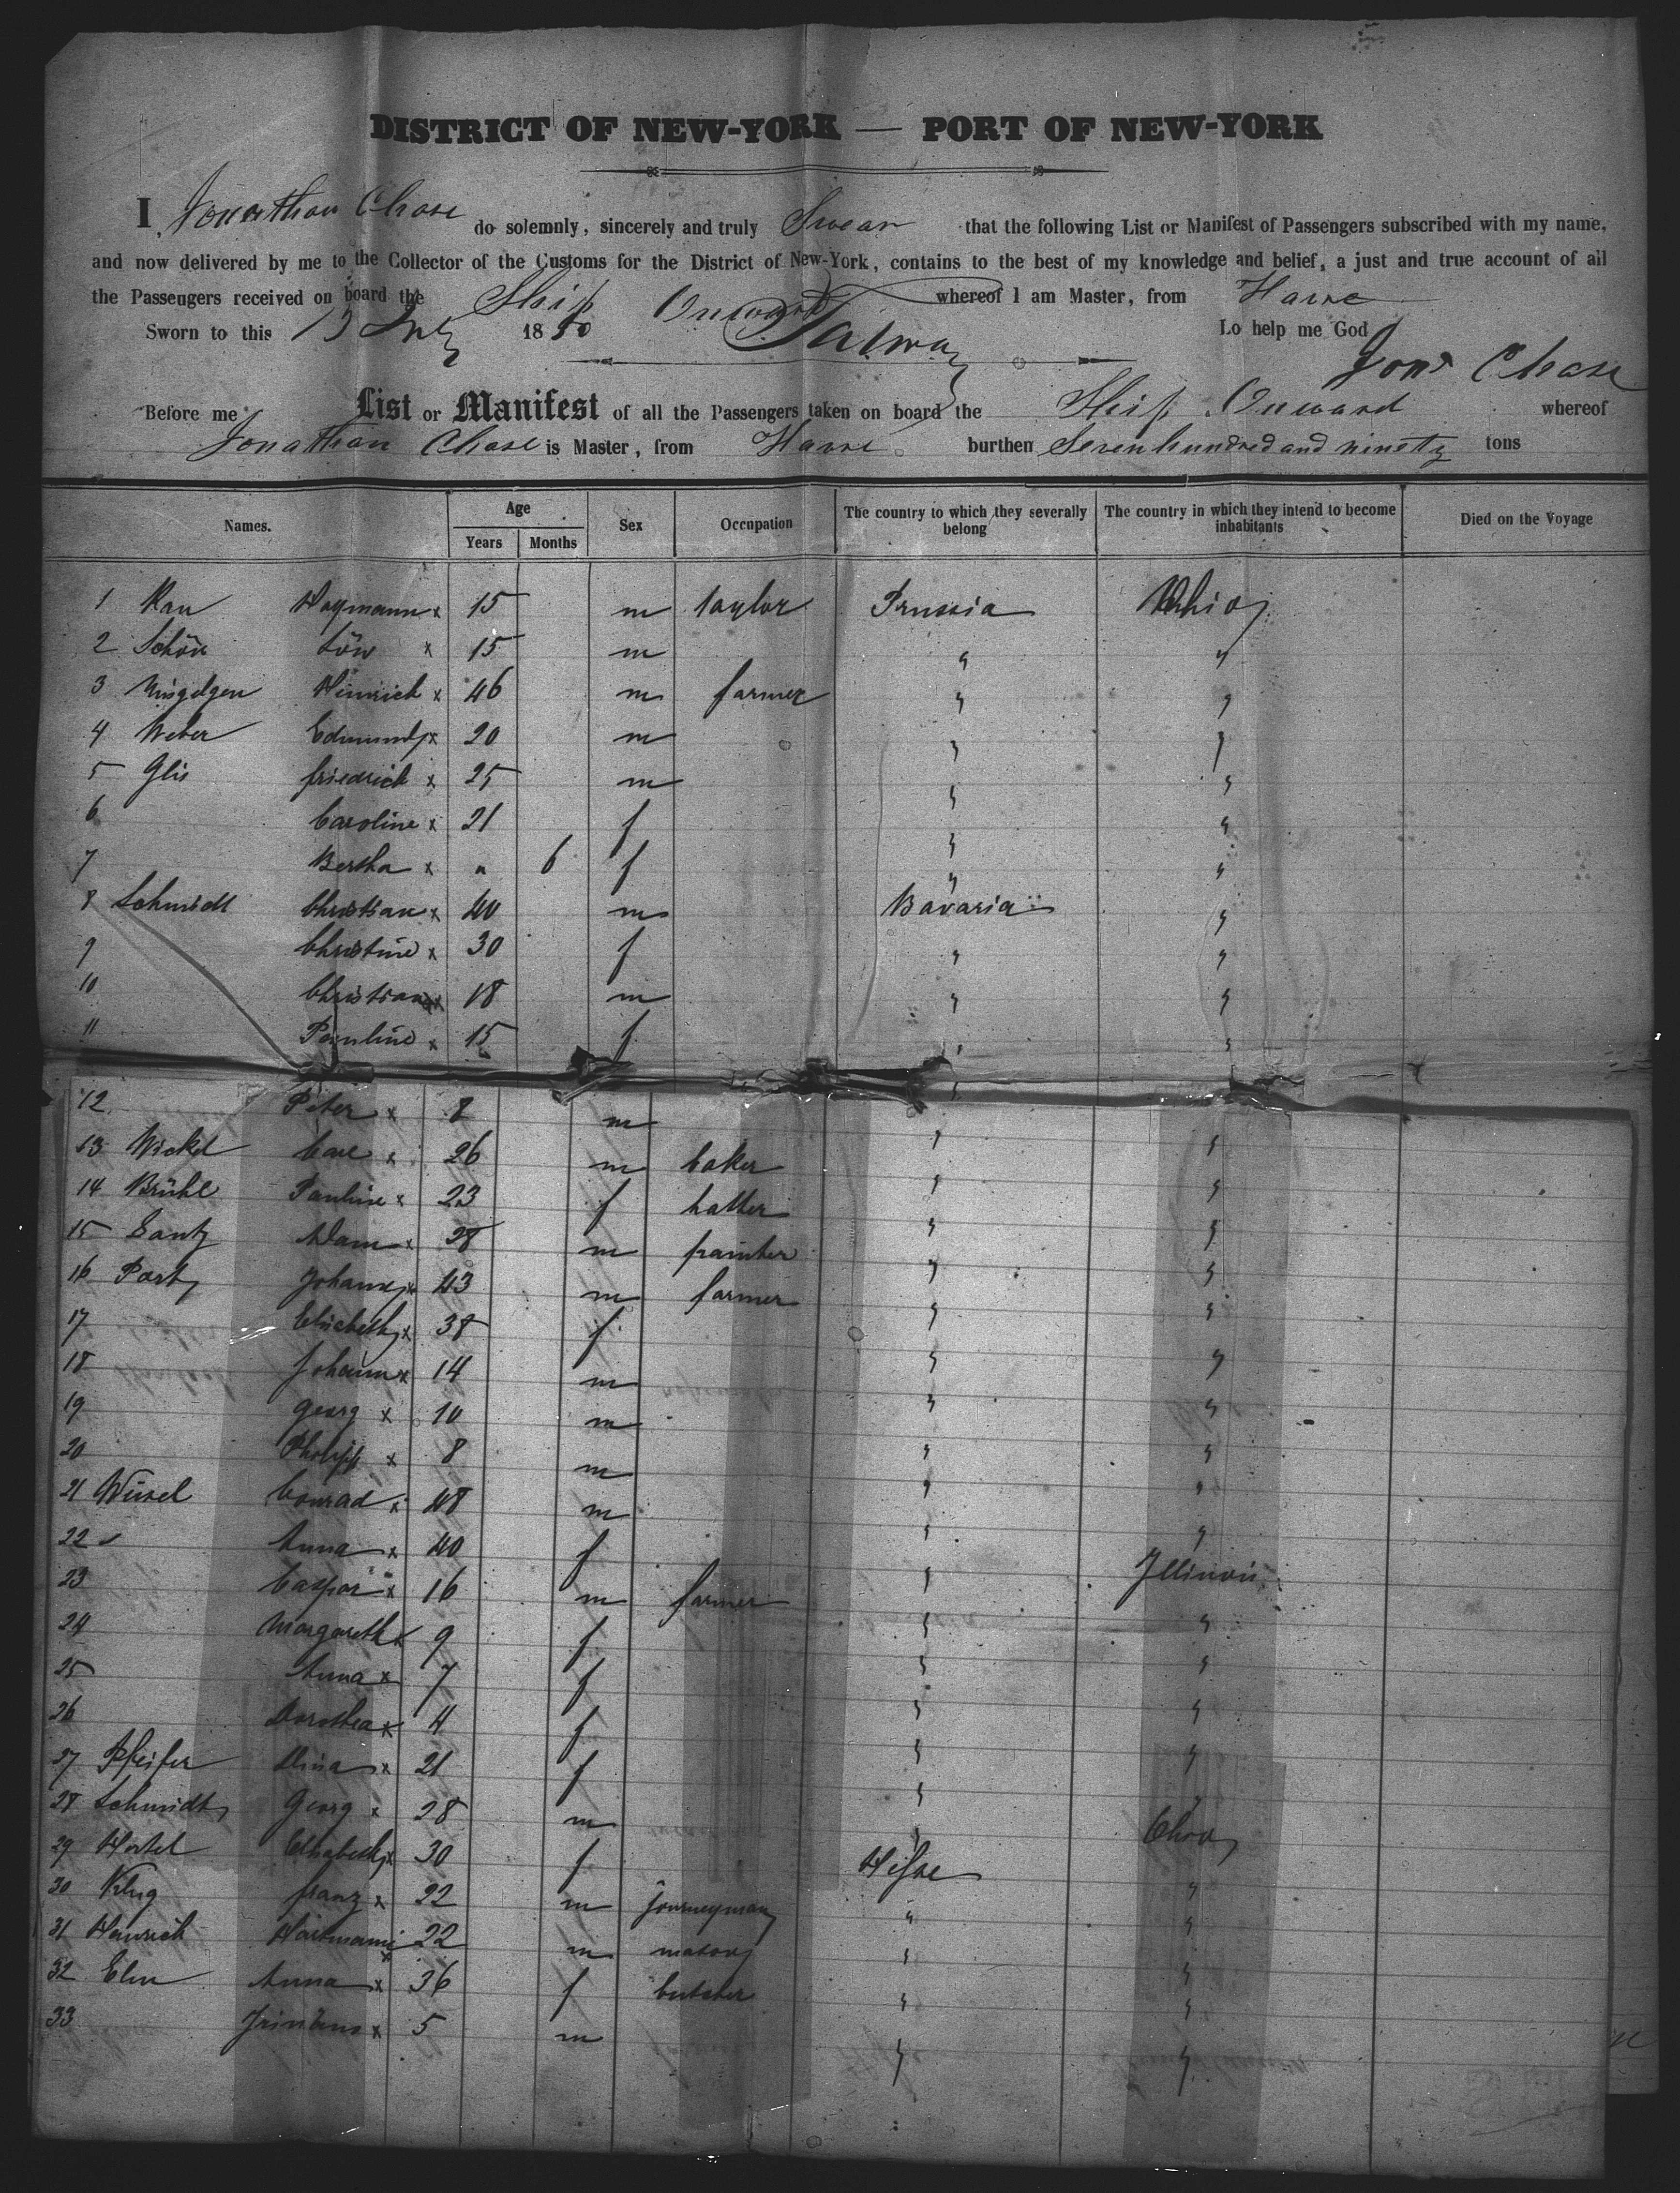 DISTRICT OF NEW-YORK — PORT OF NEW-YORK
I, Jonathan Chase do solemnly, sincerely and truly Swear that the following List or Manifest of Passengers subscribed with my name,
and now delivered by me to the Collector of the Customs for the District of New-York, contains to the best of my knowledge and belief, a just and true account of all
the Passengers received on board the Ship Onward whereof I am Master, from Havre
Sworn to this 13 July 1850 So help me God
Jonn Chase
Before me List or Manifest of all the Passengers taken on board the Ship Onward whereof
Jonathan Chase is Master, from Havre burthen Seven hundred and ninety tons
Names. Age Years Months Sex Occupation The country to which they severally belong The country in which they intend to become inhabitants Died on the Voyage
1 Kau Haymann x 15 m taylor Prussia Ohio
2 Schön Löw x 15 m " "
3 Heinrich x 46 m farmer " "
4 Weber Edmund x 20 m " "
5 Glis friedrich x 25 m " "
6 Caroline x 21 f " "
7 Bertha x " 6 f " "
8 Schmidt Christian x 40 m Bavaria "
9 Christine x 30 f " "
10 Christian x 18 m " "
11 Pauline x 15 f " "
12 Peter x 8 m " "
13 Wickel Carl x 26 m baker " "
14 Brühl Pauline x 23 f hatter " "
15 Lantz Adam x 28 m painter " "
16 Johann x 43 m farmer " "
17 Elisabeth x 38 f " "
18 Johann x 14 m " "
19 Georg x 10 m " "
20 Philipp x 8 m " "
21 Conrad x 48 m " "
22 " Anna x 40 f " "
23 Caspar x 16 m farmer " Illinois
24 Margareth x 9 f " "
25 Anna x 7 f " "
26 Dorothea x 4 f " "
27 Pfeifer Dina x 21 f " "
28 Schmidt Georg x 28 m " "
29 Hertel Elisabeth x 30 f Hesse Ohio
30 Klug franz x 22 m journeyman " "
31 Heinrich Hartmann x 22 m mason " "
32 Elm Anna x 36 f butcher " "
33 x 5 m " "